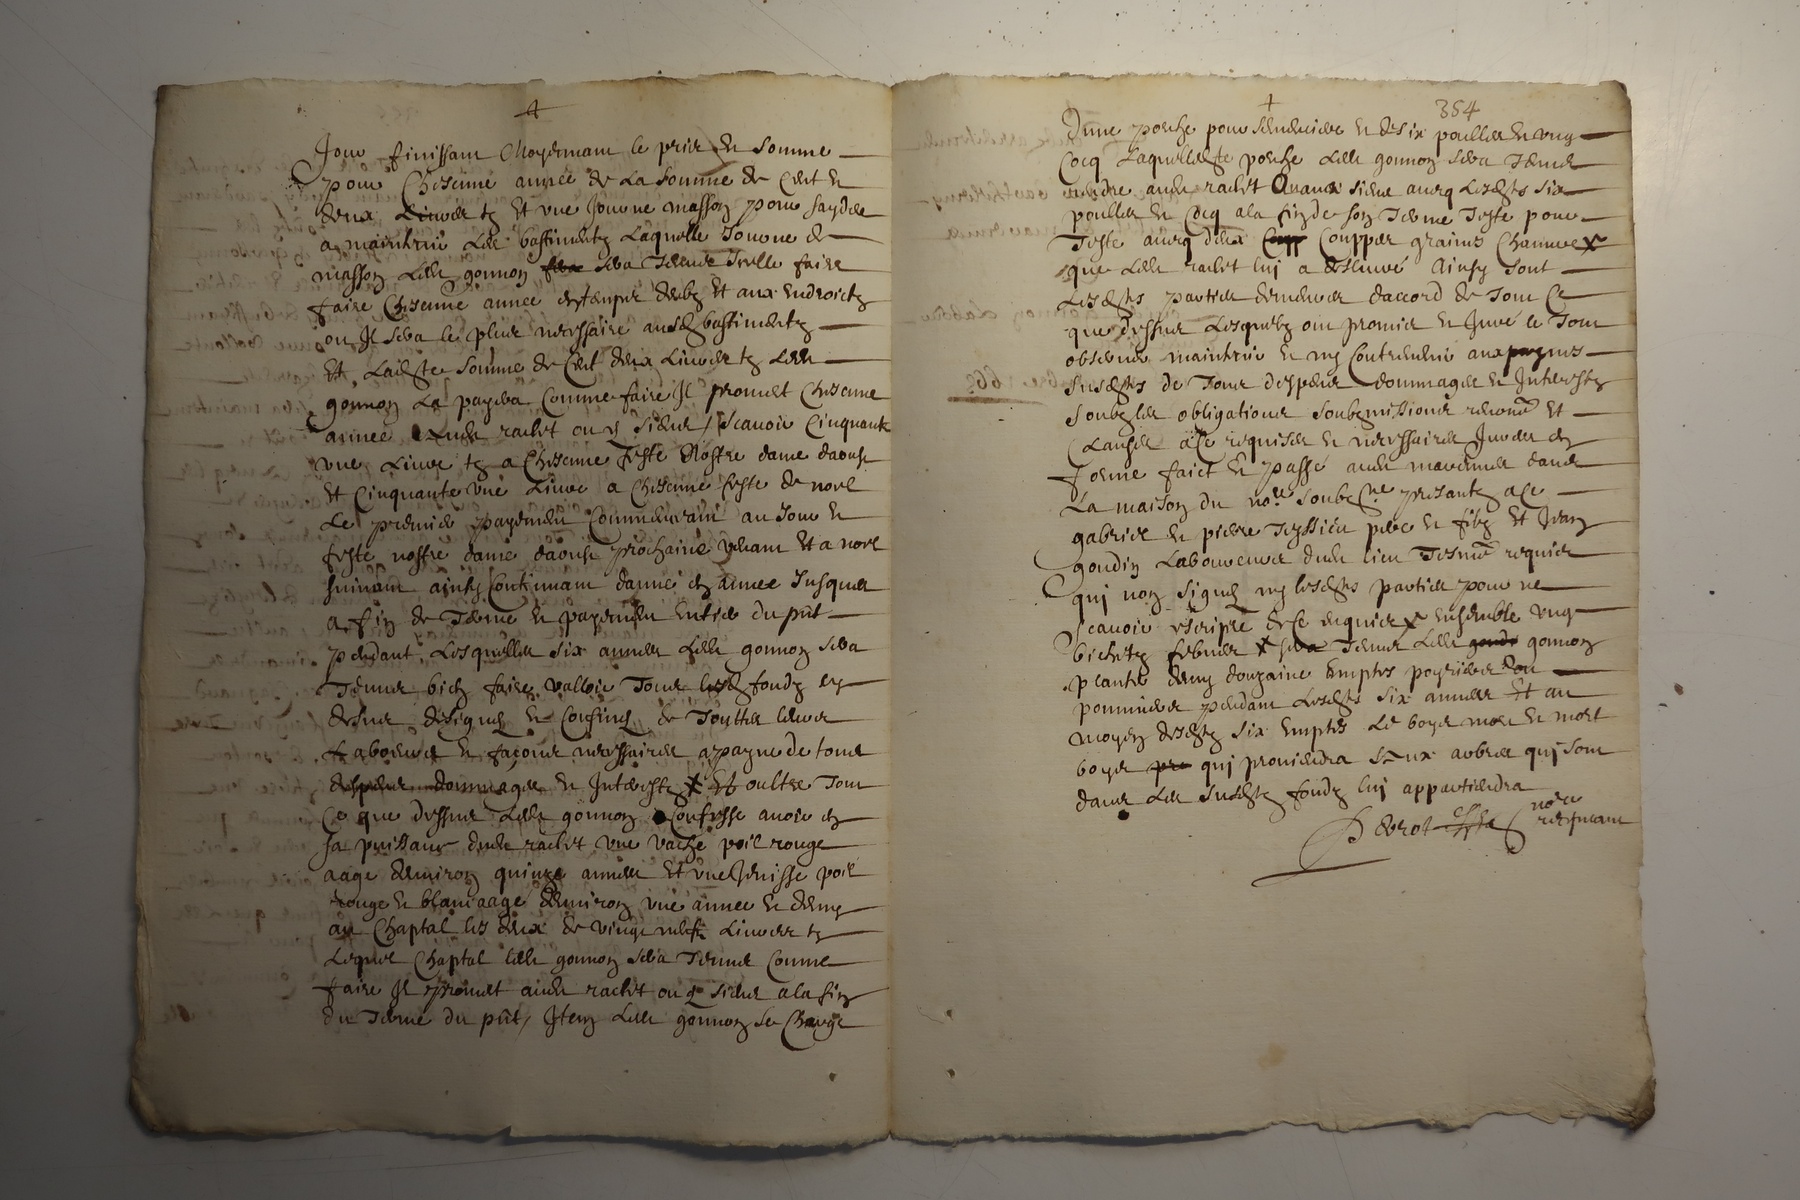 Jour finissant Moyennant le prix et somme
pour Chescune annee de La somme de Cent et
deux Livres tz Et une Journe masson pour sayder
a maintenir Les bastimentz Laquelle Journe de
masson Ledt gonnon sera Tenue Icelle faire
faire Chescune annee en temps deub Et aux endroictz
ou Il sera le plus necessaire ausdz bastimentz
Et Ladte somme de Cent deux Livres tz Ledt
gonnon La payera Comme faire Il promet Chescune
annee audt rachet ou es siens / scavoir Cinquante
une Livre tz a Chescune feste Nostre dame daoust
Et Cinquante une Livre a Chescune feste de noel
Le premier payement Commencant au Jour et
feste nostre dame daoust prochaine venant Et a noel
suivant ainsy Continuant dannee en annee Jusques
a fin de Terme et payement entier du pnt
pendant Lesquelles six annees Ledt gonnon sera
Tenue bien faire valloir Tous lesdz fondz cy
dessus designes et Confines de Touttes Leurs
Laboeures et facons necessaires a payne de tous
despens dommages et Interestz Et oultre Tout
Ce que dessus Ledt gonnon Confesse avoir en
sa puissance dudt rachet une vache poil rouge
aage denviron quinze annees Et une Jenisse poil
rouge et blanc aage denviron une annee et demy
au Chaptal les deux de vingt neufz Livres tz
Lequel Chaptal ledt gonnon sera Tenue Comme
faire Il promet audt rachet ou es siens a la fin
du Terme du pnt / Item Ledt gonnon se Charge
354
Dune poche pour et de six poulles et ung
Cocq Laquelle dte poche Ledt gonnon sera Tenue
rendre audt rachet ou aux siens avecq Lesdts six
poulles et Cocq a la fin de son Terme Teste pour
Teste avecq deux Coupp Couppes grains Chanure
que Ledt rachet lui a deslivré Ainsy sont
Lesdts parties demeures daccord de Tout Ce
que dessus Lesquelz ont promis et Juré le Tout
observer maintenir et ny Contrevenir aux paynes
susdts de Tous despens dommages et Interestz
soubz les obligations soubzmissions renonce Et
Clauses a ce requises et necessaires Jures en
forme faict et passé audt dans
La maison du nore soubzne presantz a ce
gabriel et pierre Teyssieu pere et filz Et Jean
goudin Laboureur dudt lieu Tesmes requis
qui non signes ny lesdts parties pour ne
scavoir escripre de ce enquis ensemble ung
bichetz febves sera Tenue Ledt gonnon
planter demy douzaine Emptes poyriers ou
pommiers pendant Lesdts six annees Et au
moyen desdtz six Emptes Le boys mort et mort
boys qui proviendra aux arbres qui sont
dans Les susdtz fondz lui appartiendra
nore
recevant